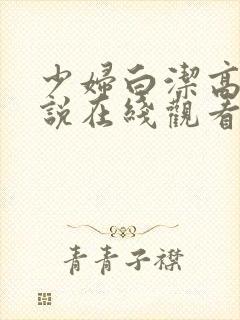 少婦白潔高
說在綫觀看
青青子襟